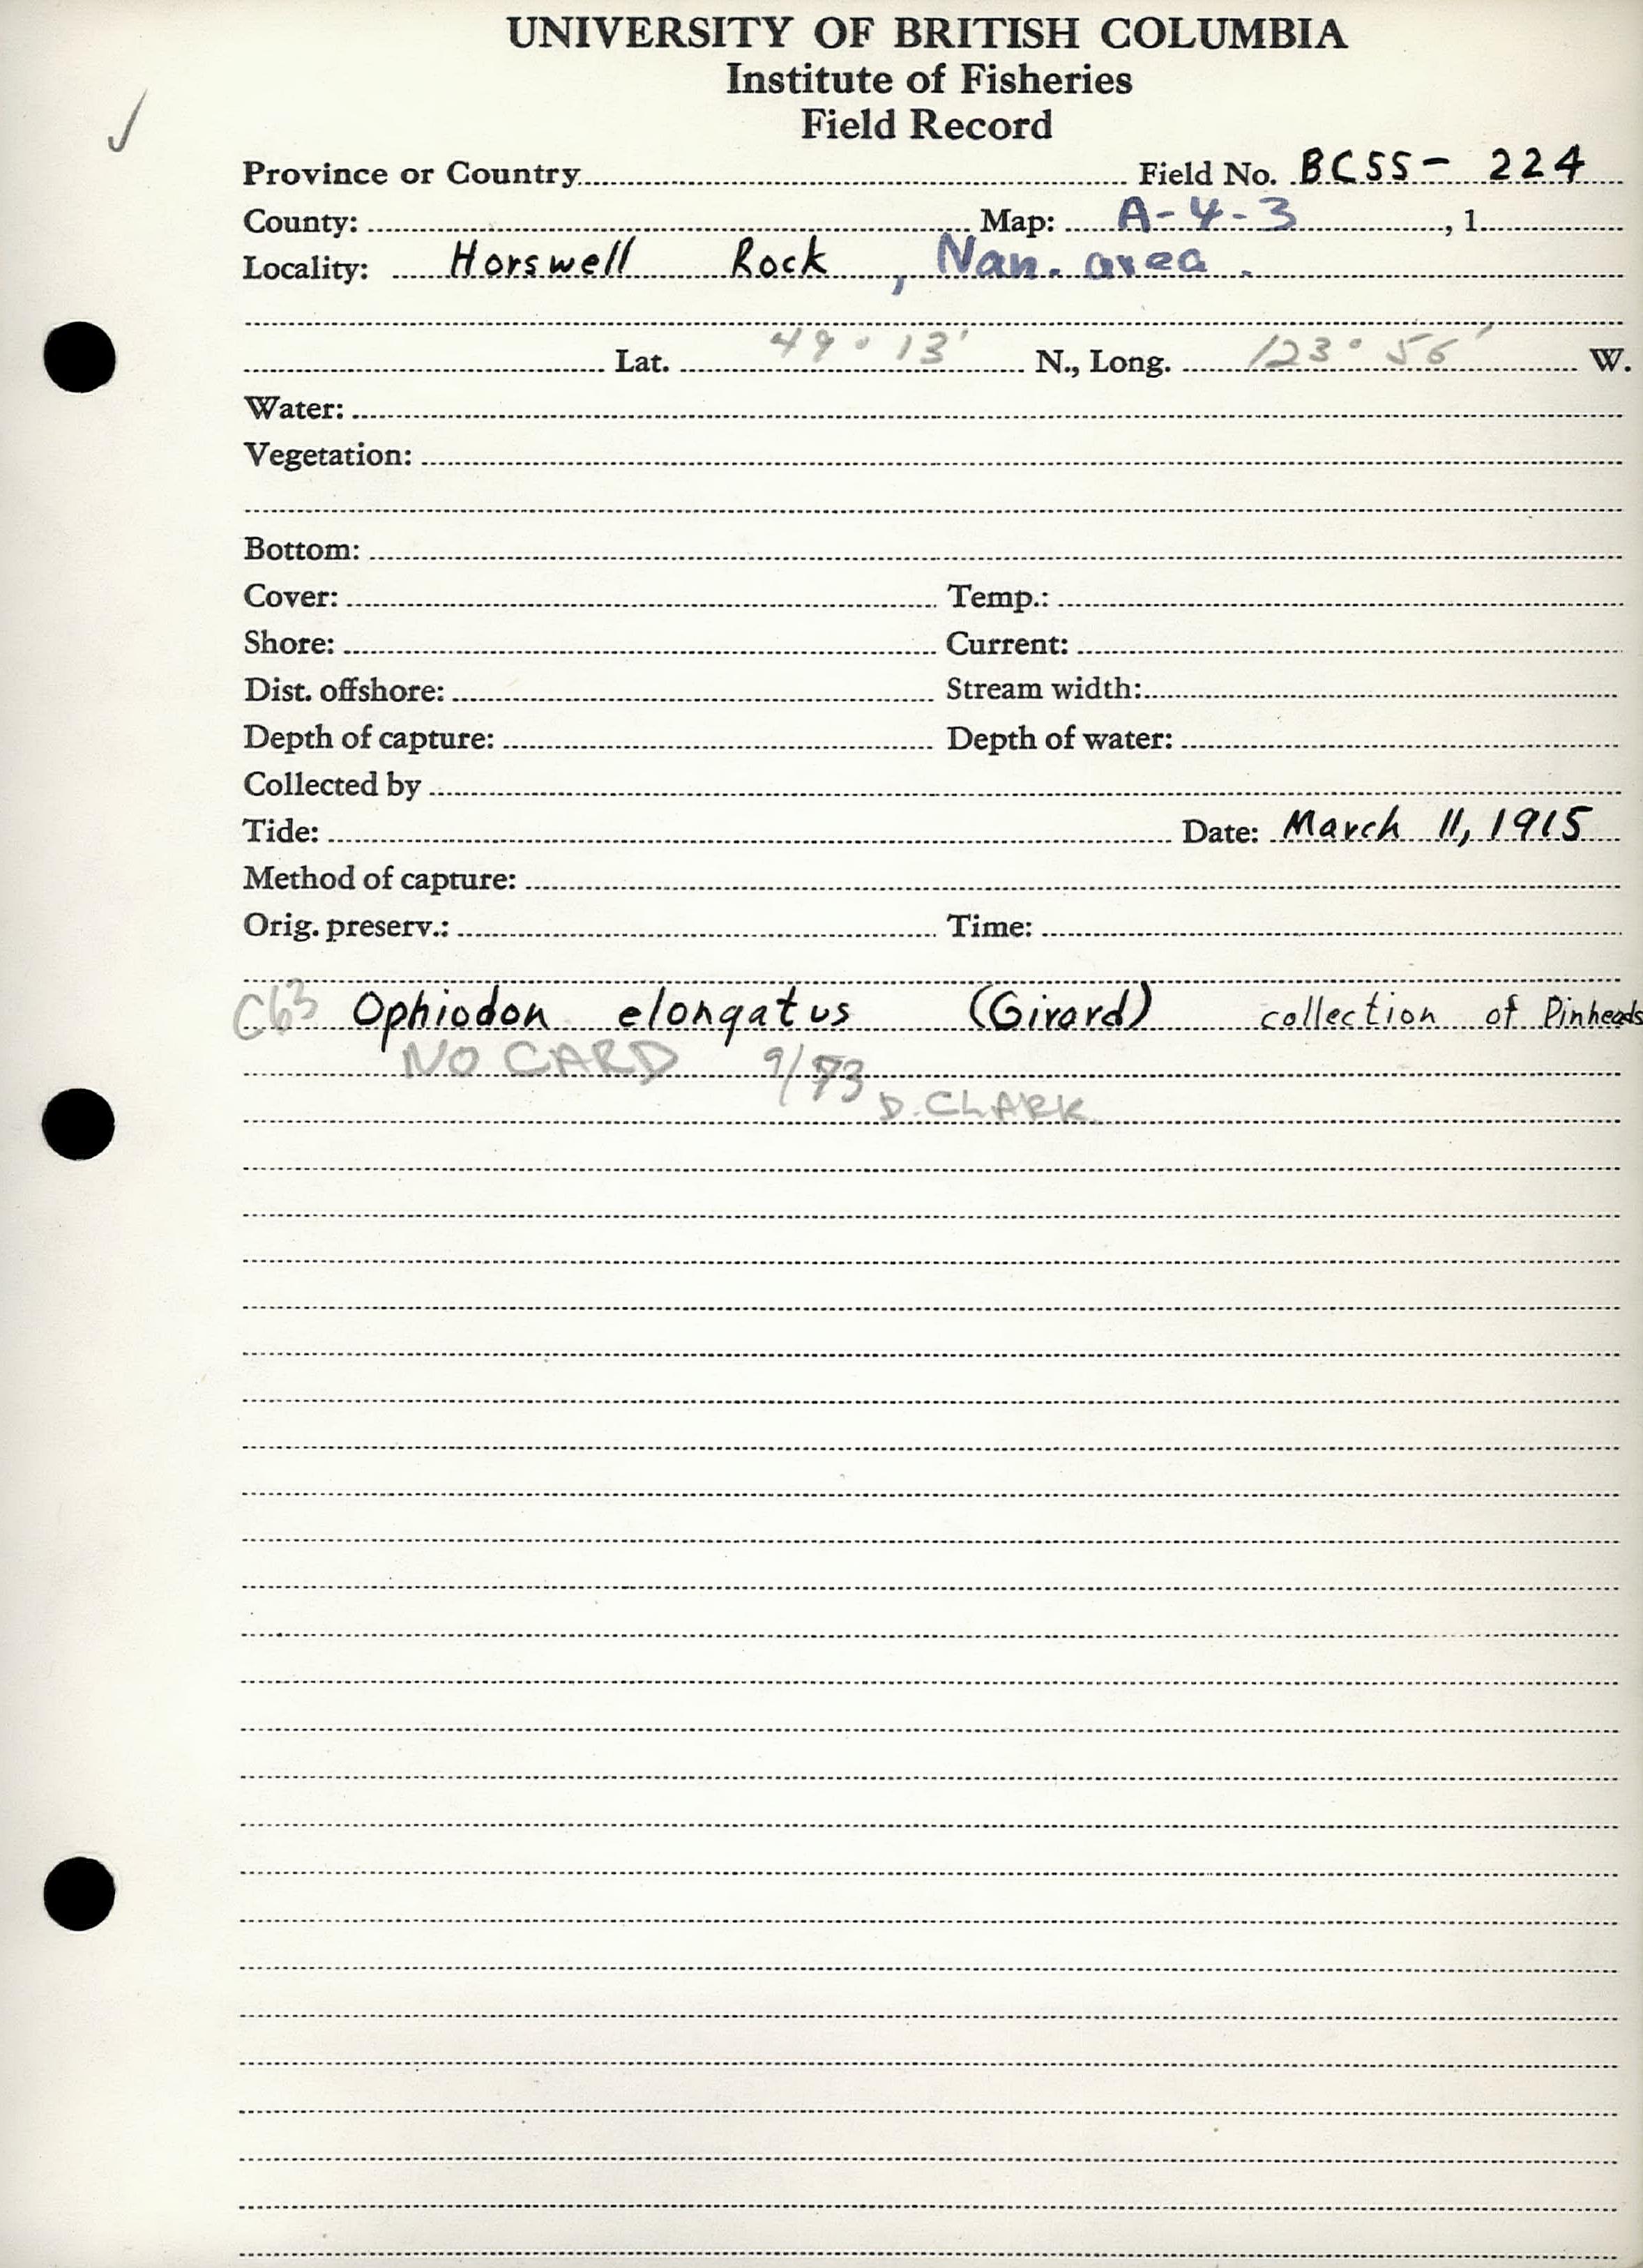 UNIVERSITY OF BRITISH COLUMBIA
Institute of Fisheries
Field Record
Province or Country Field No. BCSS- 224
County: Map: A-4-3, 1
Locality: Horswell Rock, Nan. area.
Lat. 49° 13' N., Long. 123° 56' W.
Water:
Vegetation:
Bottom:
Cover: Temp.:
Shore: Current:
Dist. offshore: Stream width:
Depth of capture: Depth of water:
Collected by
Tide: Date: March 11, 1915
Method of capture:
Orig. preserv.: Time:
C63 Ophiodon elongatus (Girard) collection of Pinheads
NO CARD 9/73 D. CLARK